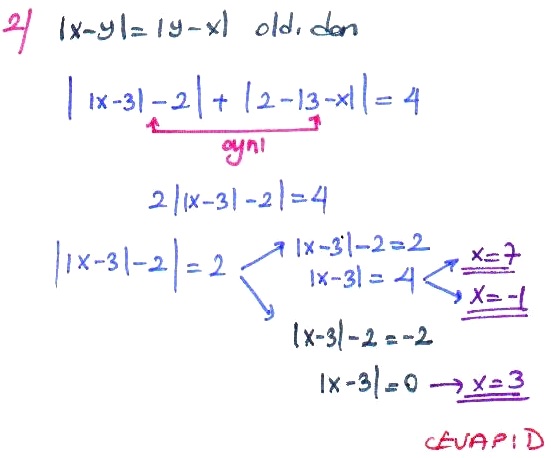 2) |x-y|=|y-x| old. dan
| |x-3|-2|+|2-|3-x||=4
aynı
2||x-3|-2|=4
||x-3|-2|=2
|x-3|-2=2
|x-3|=4
x=7
x=-1
|x-3|-2=-2
|x-3|=0 → x=3
CEVAP D